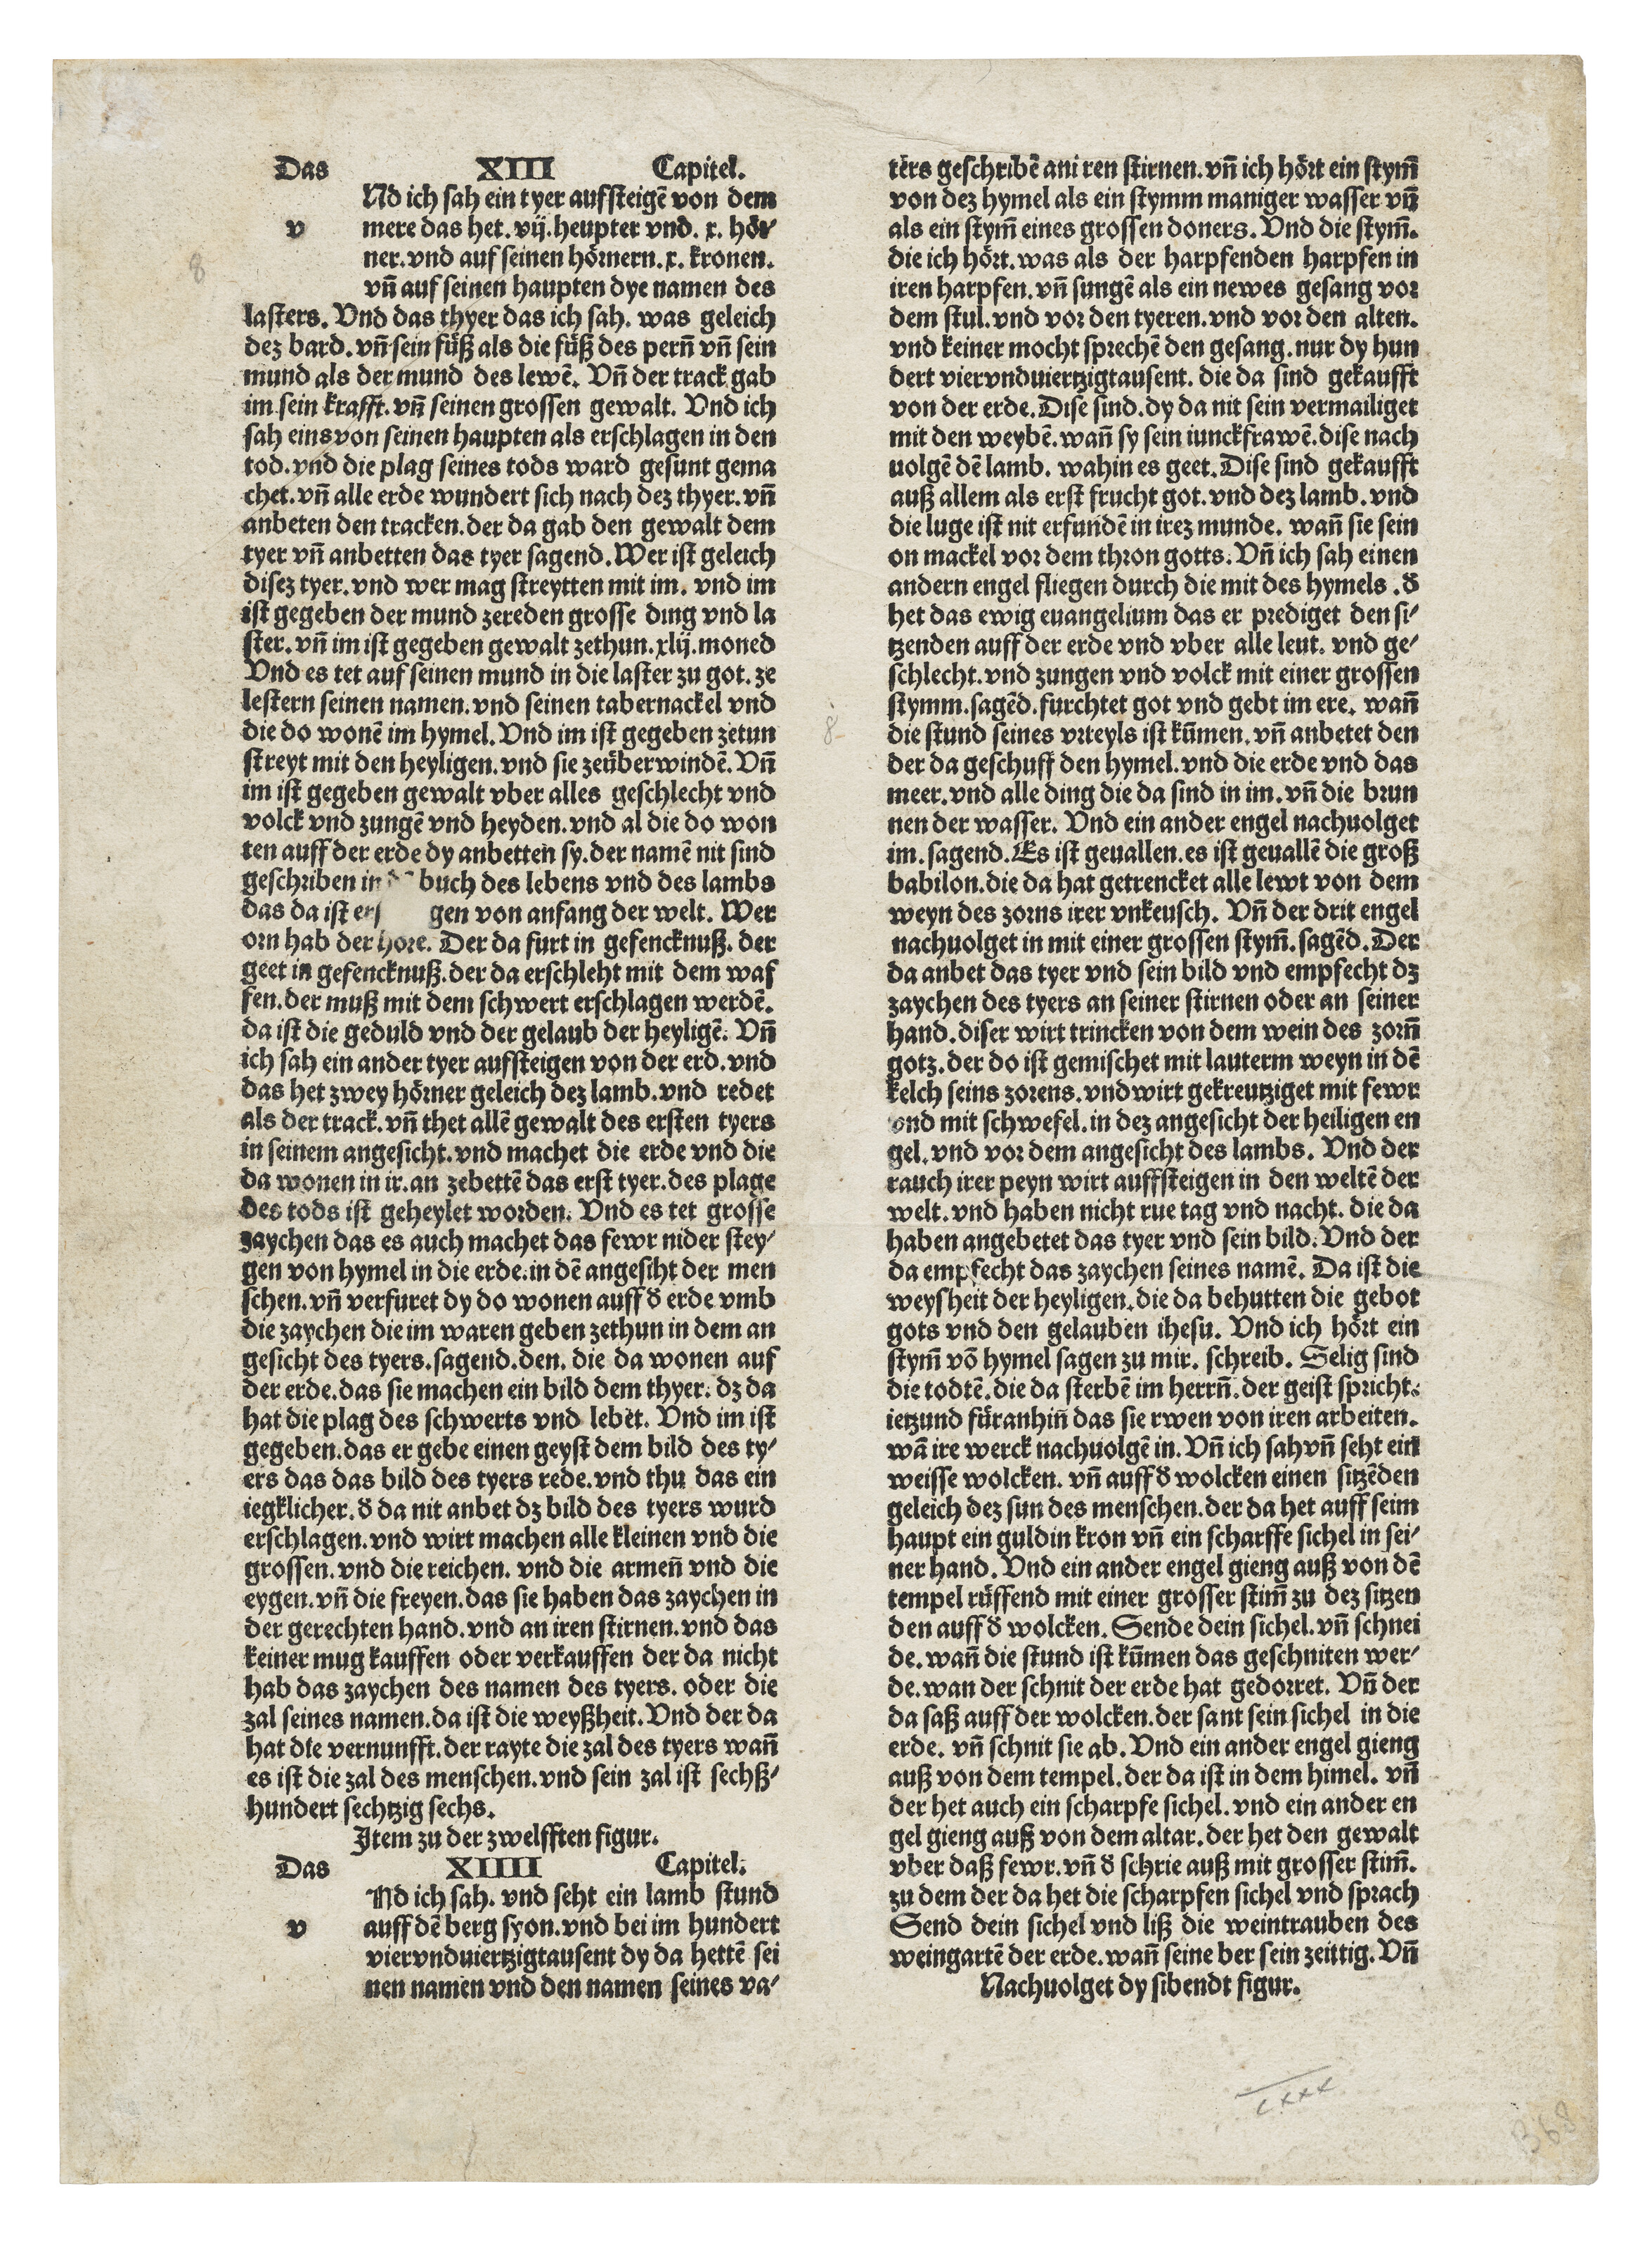 Das XIII Capitel.
Nd ich sah ein tyer aufsteigē von dem
v mere das het. vij. heupter vnd. x. hör⸗
ner. vnd auf seinen hörnern. x. kronen.
vn̄ auf seinen haupten dye namen des
lasters. Vnd das thyer das ich sah. was geleich
dez bard. vn̄ sein füß als die füß des pern̄ vn̄ sein
mund als der mund des lewē. Vn̄ der track gab
im sein krafft. vn̄ seinen grossen gewalt. Vnd ich
sah eins von seinen haupten als erschlagen in den
tod. vnd die plag seines tods ward gesunt gema
chet. vn̄ alle erde wundert sich nach dez thyer. vn̄
anbeten den tracken. der da gab den gewalt dem
tyer vn̄ anbetten das tyer sagend. Wer ist geleich
disez tyer. vnd wer mag streytten mit im. vnd im
ist gegeben der mund zereden grosse ding vnd la
ster. vn̄ im ist gegeben gewalt zethun. xlij. moned
Vnd es tet auf seinen mund in die laster zu got. ze
lestern seinen namen. vnd seinen tabernackel vnd
die do wonē im hymel. Vnd im ist gegeben zetun
streyt mit den heyligen. vnd sie zeüberwindē. Vn̄
im ist gegeben gewalt vber alles geschlecht vnd
volck vnd zungē vnd heyden. vnd al die do won
ten auff der erde dy anbetten sy. der namē nit sind
geschriben in buch des lebens vnd des lambs
das da ist gen von anfang der welt. Wer
orn hab der hore. Der da furt in gefencknuß. der
geet in gefencknuß. der da erschleht mit dem waf
fen. der muß mit dem schwert erschlagen werdē.
da ist die geduld vnd der gelaub der heyligē. Vn̄
ich sah ein ander tyer aufsteigen von der erd. vnd
das het zwey hörner geleich dez lamb. vnd redet
als der track. vn̄ thet allē gewalt des ersten tyers
in seinem angesicht. vnd machet die erde vnd die
da wonen in ir. an zebettē das erst tyer. des plage
des tods ist geheylet worden. Vnd es tet grosse
zaychen das es auch machet das fewr nider stey⸗
gen von hymel in die erde. in dē angesiht der men
schen. vn̄ verfuret dy do wonen auff d̄ erde vmb
die zaychen die im waren geben zethun in dem an
gesicht des tyers. sagend. den. die da wonen auf
der erde. das sie machen ein bild dem thyer. dz da
hat die plag des schwerts vnd lebet. Vnd im ist
gegeben. das er gebe einen geyst dem bild des ty⸗
ers das das bild des tyers rede. vnd thu das ein
iegklicher. d̄ da nit anbet dz bild des tyers wurd
erschlagen. vnd wirt machen alle kleinen vnd die
grossen. vnd die reichen. vnd die armen̄ vnd die
eygen. vn̄ die freyen. das sie haben das zaychen in
der gerechten hand. vnd an iren stirnen. vnd das
keiner mug kauffen oder verkauffen der da nicht
hab das zaychen des namen des tyers. oder die
zal seines namen. da ist die weyßheit. Vnd der da
hat die vernunfft. der rayte die zal des tyers wan̄
es ist die zal des menschen. vnd sein zal ist sechß⸗
hundert sechtzig sechs.
Item zu der zwelfften figur.
Das XIIII Capitel.
Nd ich sah. vnd seht ein lamb stund
v auff dē berg syon. vnd bei im hundert
viervnduiertzigtausent dy da hettē sei
nen namen vnd den namen seines va⸗
ters geschribē ani ren stirnen. vn̄ ich hört ein stym̄
von dez hymel als ein stymm maniger wasser vn̄
als ein stym̄ eines grossen doners. Vnd die stym̄.
die ich hört. was als der harpfenden harpfen in
iren harpfen. vn̄ sungē als ein newes gesang vor
dem stul. vnd vor den tyeren. vnd vor den alten.
vnd keiner mocht sprechē den gesang. nur dy hun
dert viervnduiertzigtausent. die da sind gekaufft
von der erde. Dise sind. dy da nit sein vermailiget
mit den weybē. wan̄ sy sein iunckfrawē. dise nach
uolgē dē lamb. wahin es geet. Dise sind gekaufft
auß allem als erst frucht got. vnd dez lamb. vnd
die luge ist nit erfundē in irez munde. wan̄ sie sein
on mackel vor dem thron gotts. Vn̄ ich sah einen
andern engel fliegen durch die mit des hymels. d̄
het das ewig euangelium das er prediget den si⸗
tzenden auff der erde vnd vber alle leut. vnd ge⸗
schlecht. vnd zungen vnd volck mit einer grossen
stymm. sagēd. furchtet got vnd gebt im ere. wan̄
die stund seines vrteyls ist kūmen. vn̄ anbetet den
der da geschuff den hymel. vnd die erde vnd das
meer. vnd alle ding die da sind in im. vn̄ die brun
nen der wasser. Vnd ein ander engel nachuolget
im. sagend. Es ist geuallen. es ist geuallē die groß
babilon. die da hat getrencket alle lewt von dem
weyn des zorns irer vnkeusch. Vn̄ der drit engel
nachuolget in mit einer grossen stym̄. sagēd. Der
da anbet das tyer vnd sein bild vnd empfecht dz
zaychen des tyers an seiner stirnen oder an seiner
hand. diser wirt trincken von dem wein des zorn̄
gotz. der do ist gemischet mit lauterm weyn in dē
kelch seins zorens. vnd wirt gekreutziget mit fewr
vnd mit schwefel. in dez angesicht der heiligen en
gel. vnd vor dem angesicht des lambs. Vnd der
rauch irer peyn wirt auffsteigen in den weltē der
welt. vnd haben nicht rue tag vnd nacht. die da
haben angebetet das tyer vnd sein bild. Vnd der
da empfecht das zaychen seines namē. Da ist die
weysheit der heyligen. die da behutten die gebot
gots vnd den gelauben ihesu. Vnd ich hört ein
stym̄ vō hymel sagen zu mir. schreib. Selig sind
die todtē. die da sterbē im herrn̄. der geist spricht.
ietzund füranhin̄ das sie rwen von iren arbeiten.
wā ire werck nachuolgē in. Vn̄ ich sah vn̄ seht ein
weisse wolcken. vn̄ auff d̄ wolcken einen sitzēden
geleich dez sun des menschen. der da het auff seim
haupt ein guldin kron vn̄ ein scharffe sichel in sei⸗
ner hand. Vnd ein ander engel gieng auß von dē
tempel rüffend mit einer grosser stim̄ zu dez sitzen
den auff d̄ wolcken. Sende dein sichel. vn̄ schnei
de. wan̄ die stund ist kūmen das geschniten wer⸗
de. wan der schnit der erde hat gedorret. Vn̄ der
da saß auff der wolcken. der sant sein sichel in die
erde. vn̄ schnit sie ab. Vnd ein ander engel gieng
auß von dem tempel. der da ist in dem himel. vn̄
der het auch ein scharpfe sichel. vnd ein ander en
gel gieng auß von dem altar. der het den gewalt
vber daß fewr. vn̄ d̄ schrie auß mit grosser stim̄.
zu dem der da het die scharpfen sichel vnd sprach
Send dein sichel vnd liß die weintrauben des
weingartē der erde. wan̄ seine ber sein zeittig. Vn̄
Nachuolget dy sibendt figur.
cxxx
B68